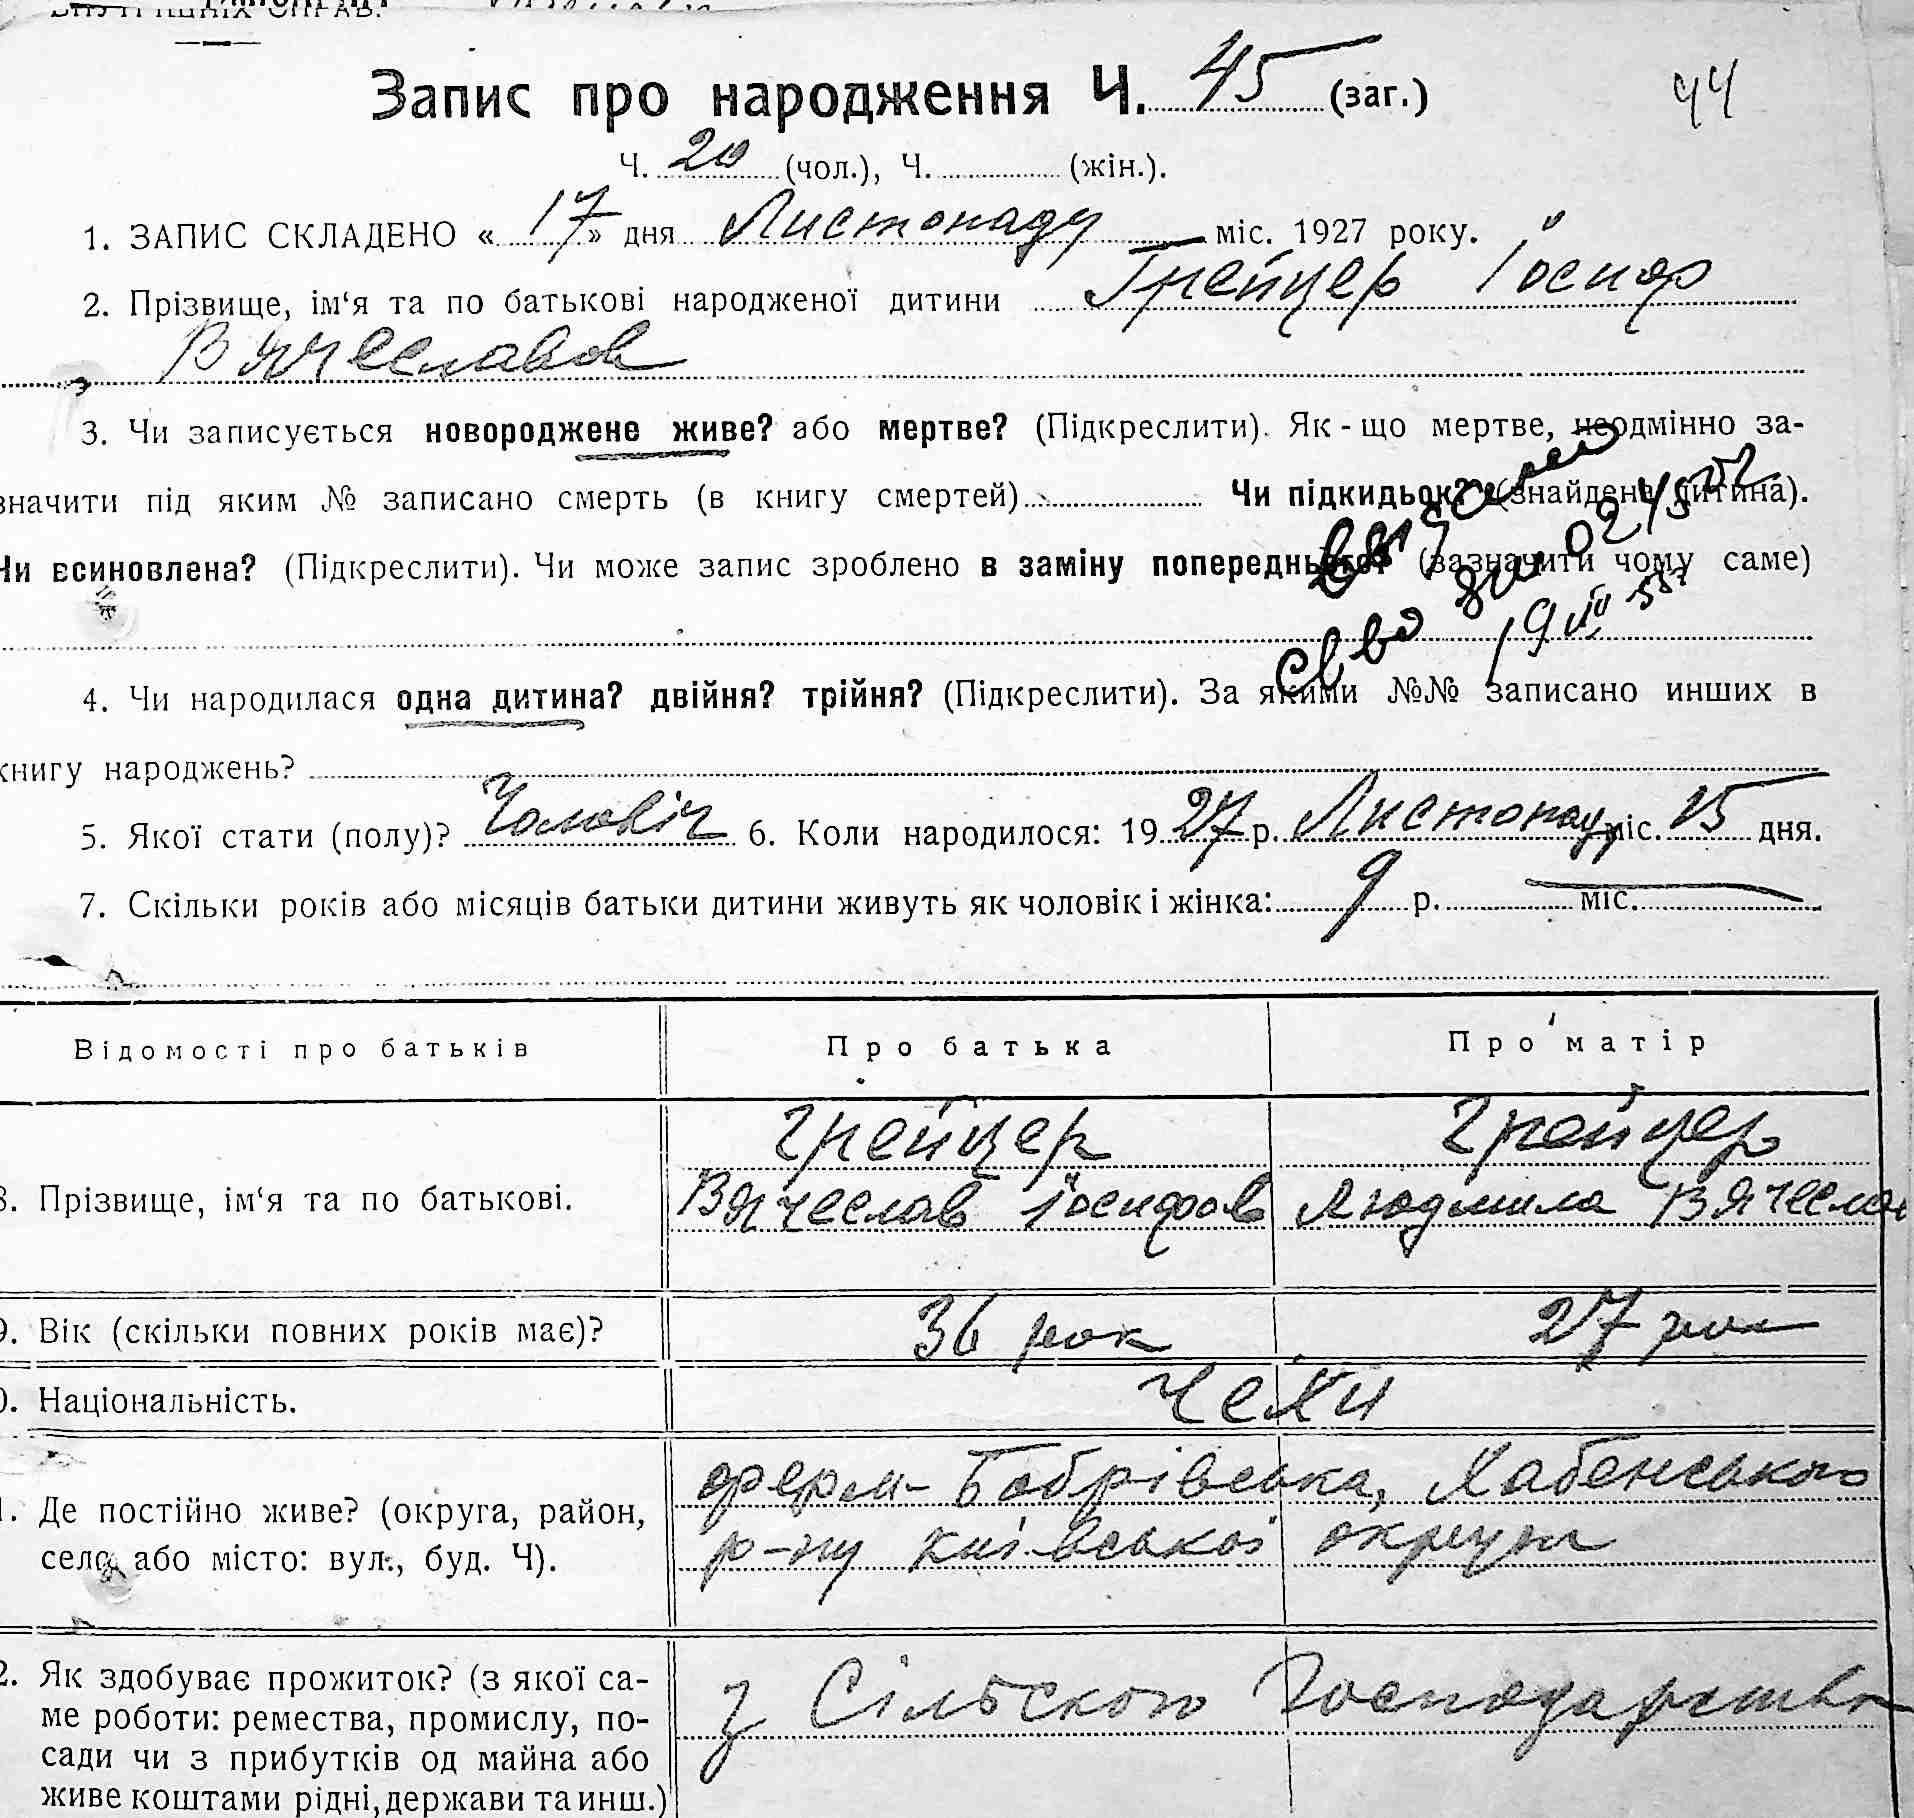 ВНУТРІШНІХ СПРАВ.
Запис про народження Ч. 45 (заг.)
44
Ч. 20 (чол.), Ч. (жін.).
1. ЗАПИС СКЛАДЕНО « 17 » дня Листопаду міс. 1927 року.
2. Прізвище, ім‘я та по батькові народженої дитини Грейцер Йосиф
Вячеславов
3. Чи записується новороджене живе? або мертве? (Підкреслити). Як-що мертве, неодмінно за-
значити під яким № записано смерть (в книгу смертей) Чи підкидьок? (знайдена дитина).
Чи всиновлена? (Підкреслити). Чи може запис зроблено в заміну попереднього? (зазначити чому саме)
4. Чи народилася одна дитина? двійня? трійня? (Підкреслити). За якими №№ записано инших в
книгу народжень?
5. Якої стати (полу)? Чоловіч 6. Коли народилося: 1927 р. Листопаду міс. 15 дня.
7. Скільки років або місяців батьки дитини живуть як чоловік і жінка: 9 р. — міс.
Відомості про батьків Про батька Про матір
8. Прізвище, ім‘я та по батькові. Грейцер Грейцер
Вячеслав Йосифов Людмила Вячеслав
9. Вік (скільки повних років має)? 36 рок 27 рок
0. Національність. Чехи
1. Де постійно живе? (округа, район, село або місто: вул., буд. Ч). ферм-Бобрівська, Хабенського
р-ну Київської округи
2. Як здобуває прожиток? (з якої са-
ме роботи: ремества, промислу, по-
сади чи з прибутків од майна або
живе коштами рідні, держави та инш.)
з Сільского Господарства